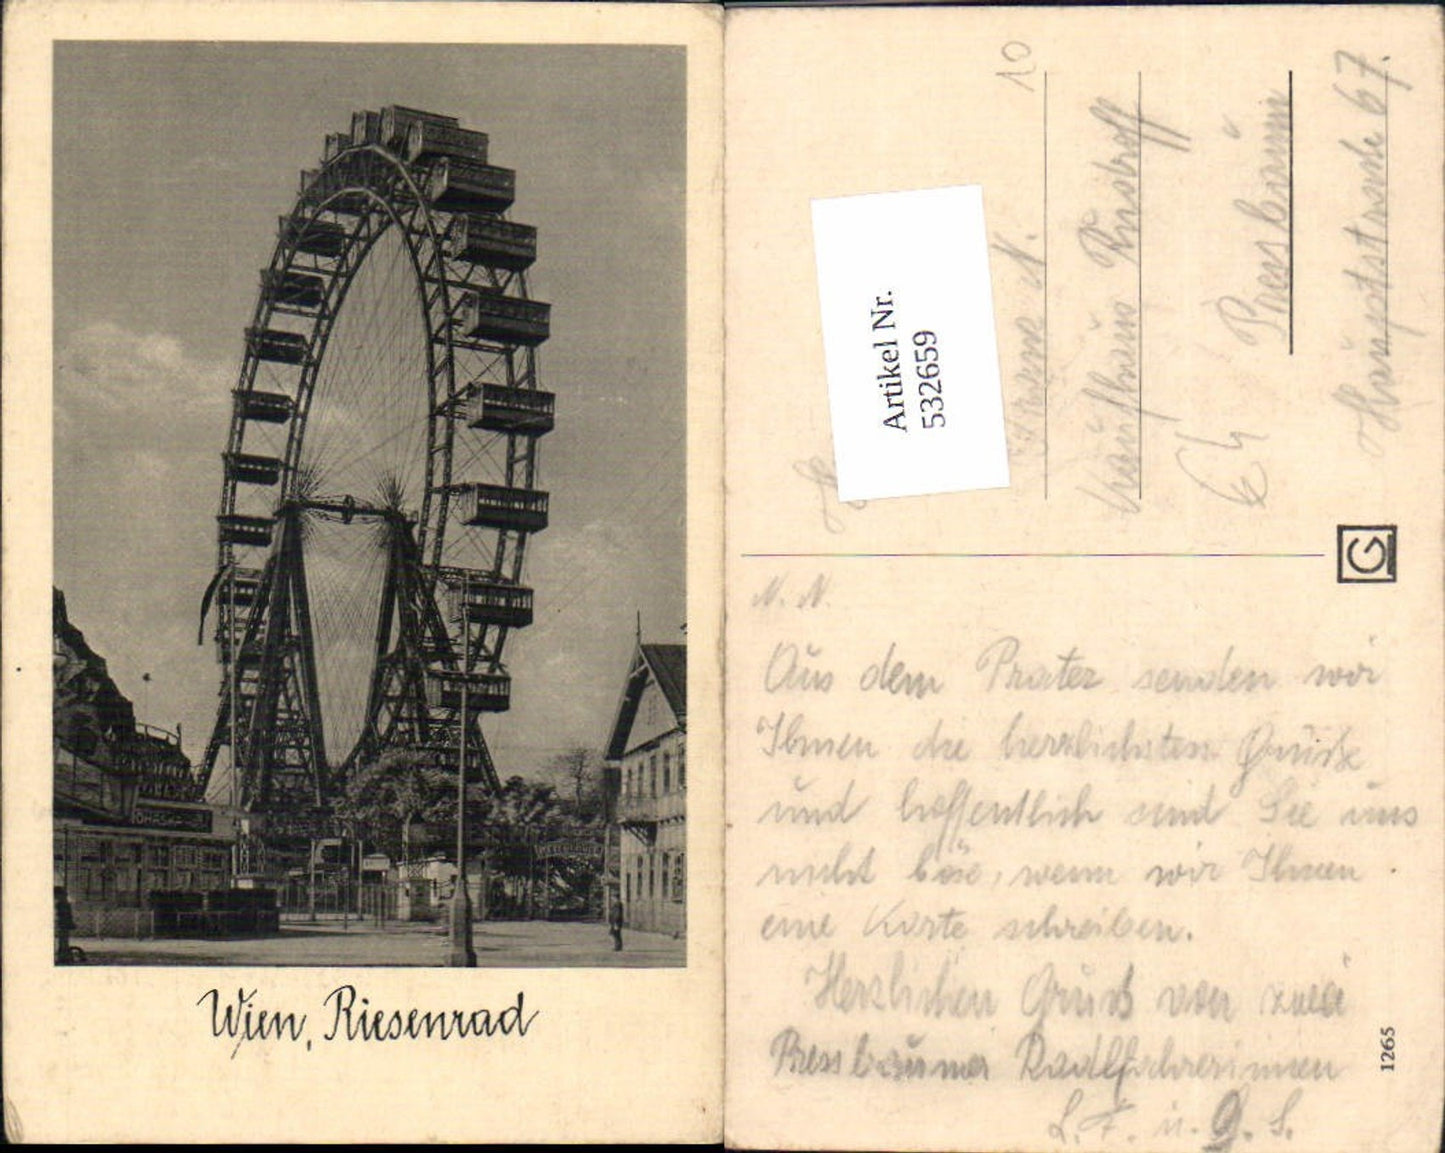 Wien, Riesenrad
Artikel Nr.
532659
10
Franz N.
Kaufhaus Rudroff
Pressbaum
Hauptstrasse 67.
G
N. N.
Aus dem Prater senden wir
Ihnen die herzlichsten Grüße
und hoffentlich sind Sie uns
nicht böse, wenn wir Ihnen
eine Karte schreiben.
Herzlichen Gruß von zwei
Pressbaumer Radlfahrerinnen
L. F. u. G. S.
1265